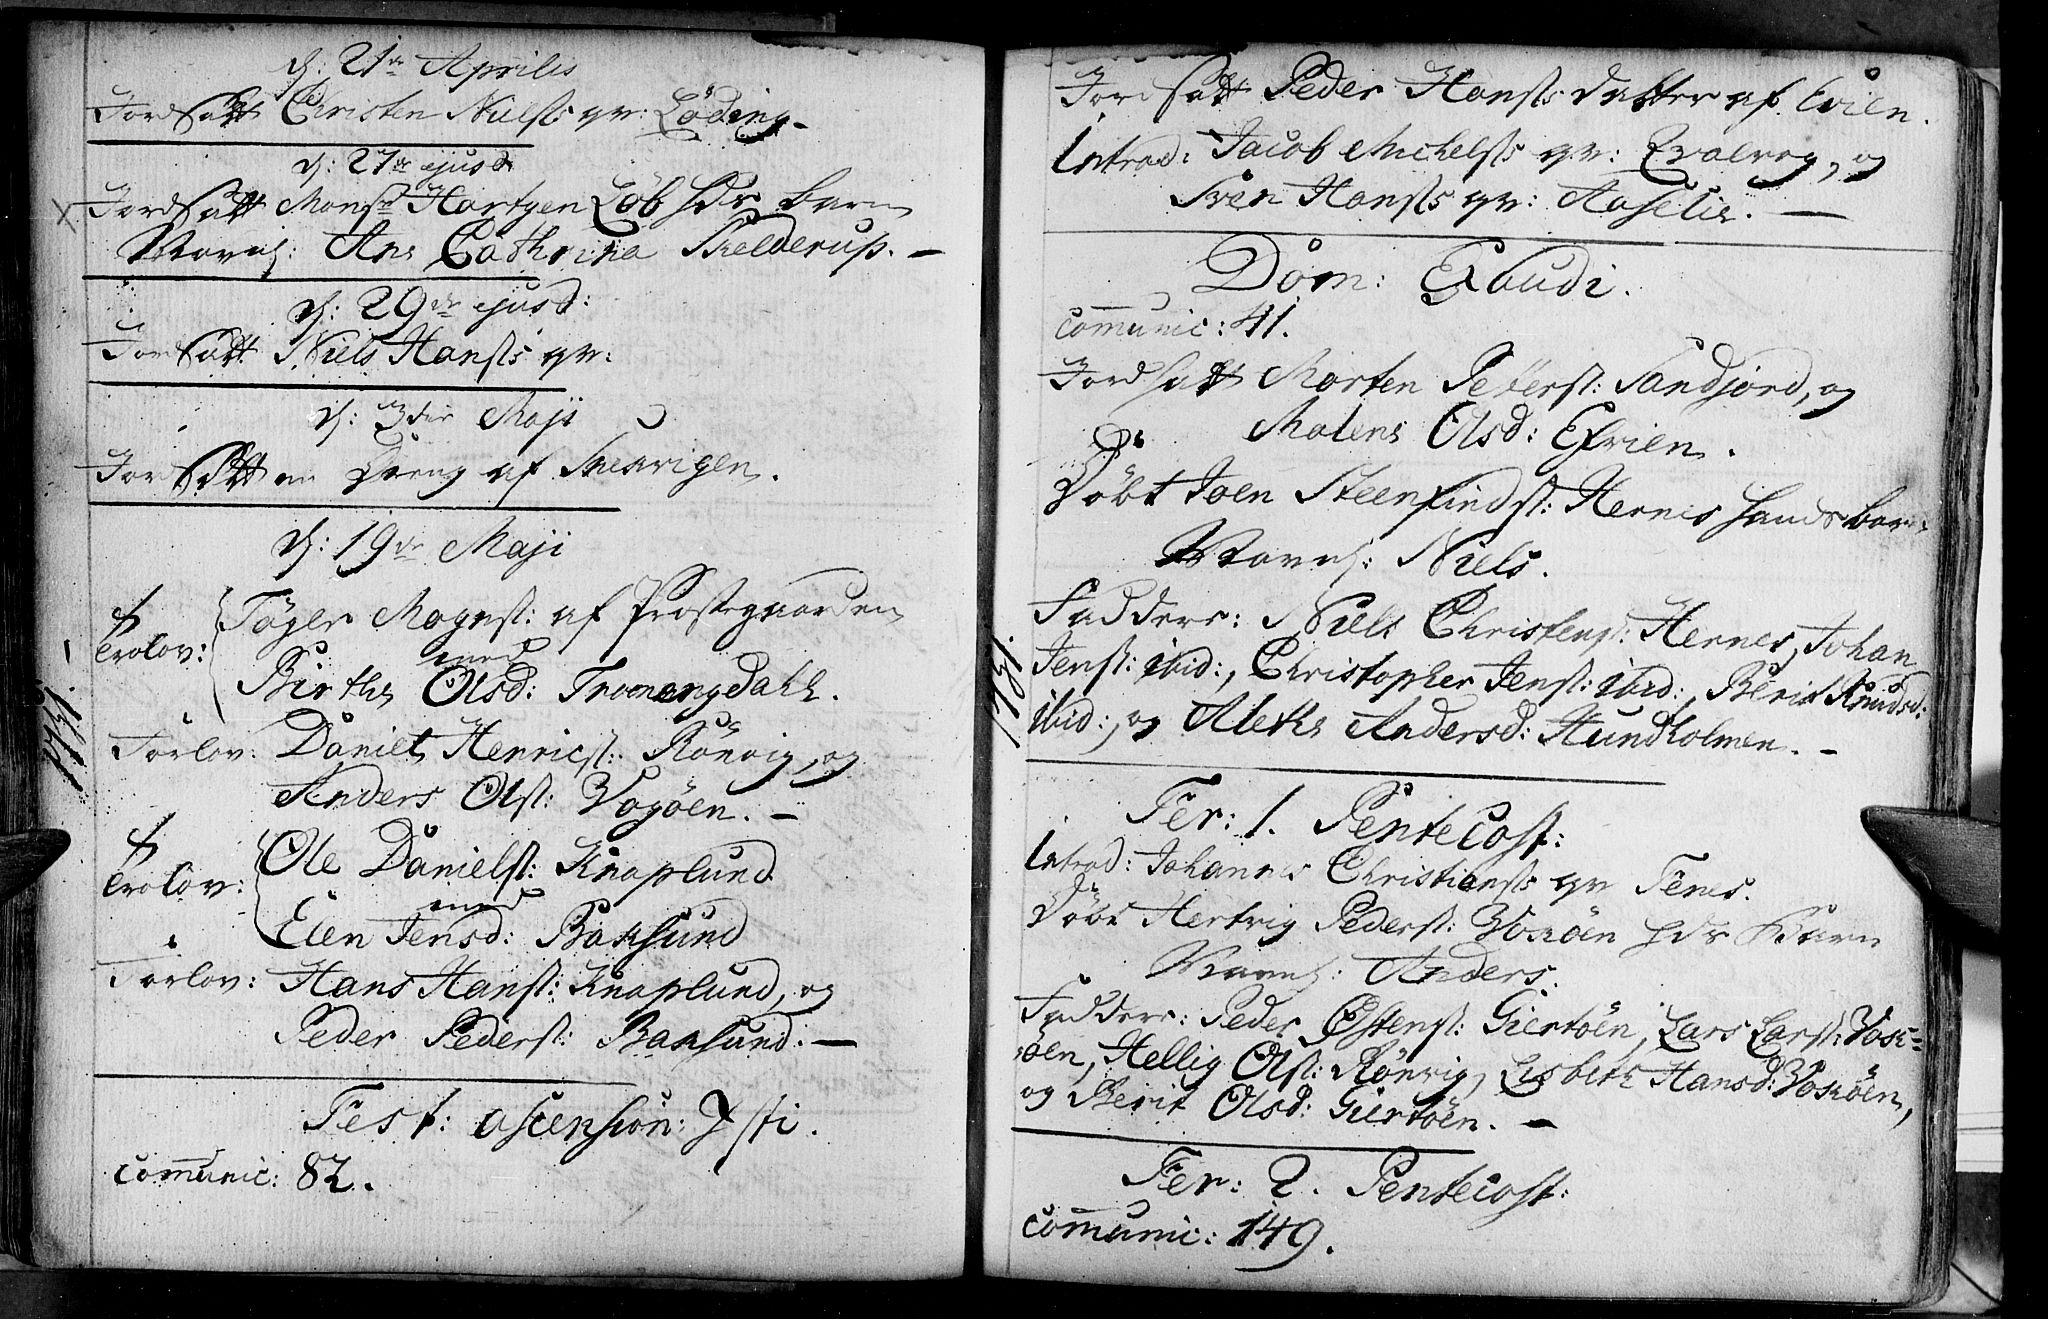 d: 21de Aprilis
Jordsatt Christen Nielss qv: Löding.
d: 27de ejusd
Jordsatt Monsr Hartgen Löb hds barn
Navnl: An: Cathrina Skelderup. —
d: 29de ejusd:
Jordsatt Niels Hanss qv:
d: 3die Maji
Jordsatt en Dreng af
d: 19de Maji
Trolov: Töger Mognss: af Prostegaarden
med
Birthe Olsd:
Forlov: Daniel Henricss: Rönvig, og
Anders Olss: Vogöen. —
Trolov: Ole Danielss: Knaplund
med
Elen Jensd: Baksund
Forlov: Hans Hanss: Knaplund, og
Peder Pederss: Baksund: —
Fest: ascension: Xsti.
comunic: 82.
1751.
Jordsatt Peder Hanss datter af Evien.
Introd: Jacob Michelss qv: Qvalvog, og
Sven Hanss qv: Aaselie. —
Dom: Exaudi.
comunic: 41.
Jordsatt Morten Peterss: Sandjord, og
Malene Olsd: Efvien.
Döbt Joen Steenfindss: Hernes hands barn
Navnl: Niels.
Faddere: Niels Christenss: Hernes, Johan
Jenss: ibid:, Christopher Jenss: ibid:, Berit Knudsd:
ibid:, og Alethe Andersd: Hundholmen. —
1751.
Fer: 1. Pentecost:
Introd: Johannes Christianss qv Fenes.
Döbt Hertvig Pederss: Voxöen hds Barn
Navnl: Anders.
Faddere: Peder Ostenss: Giertöen, Lars Larss: Vox=
öen, Hellig Olss: Rönvig, Lisbeth Hansd: Voxöen,
og Berit Olsd: Giertöen. —
Fer: 2. Pentecost:
comunic: 149.